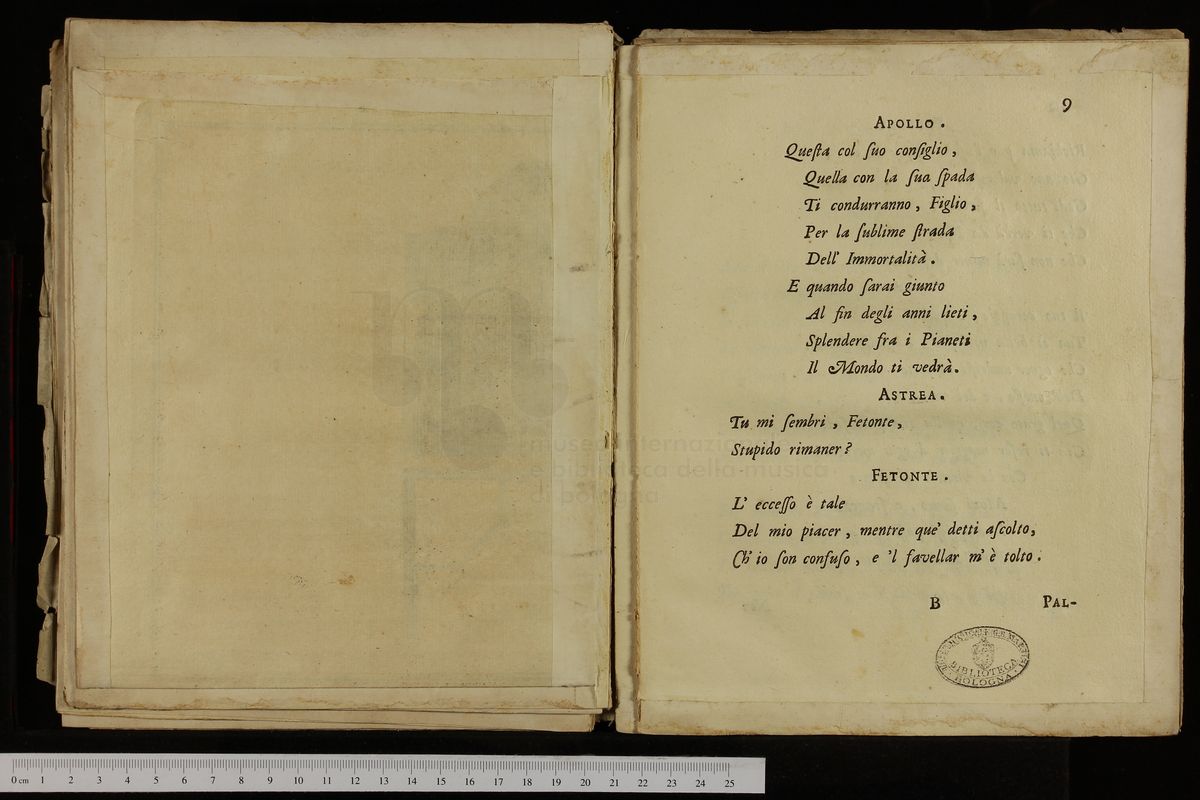 9
APOLLO.
Queſta col ſuo conſiglio,
Quella con la ſua ſpada
Ti condurranno, Figlio,
Per la ſublime ſtrada
Dell' Immortalità.
E quando ſarai giunto
Al fin degli anni lieti,
Splendere fra i Pianeti
Il Mondo ti vedrà.
ASTREA.
Tu mi ſembri, Fetonte,
Stupido rimaner?
FETONTE.
L' ecceſſo è tale
Del mio piacer, mentre que' detti aſcolto,
Ch' io ſon confuſo, e 'l favellar m' è tolto.
B PAL-
BIBLIOTECA
BOLOGNA
museo internazionale
e biblioteca della musica
di bologna
0 cm 1 2 3 4 5 6 7 8 9 10 11 12 13 14 15 16 17 18 19 20 21 22 23 24 25